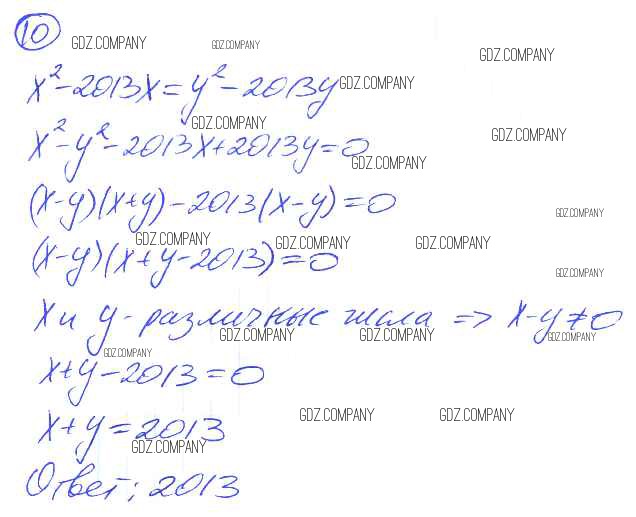 10
GDZ.COMPANY GDZ.COMPANY GDZ.COMPANY
x² - 2013x = y² - 2013y GDZ.COMPANY
GDZ.COMPANY GDZ.COMPANY
x² - y² - 2013x + 2013y = 0
GDZ.COMPANY
(x-y)(x+y) - 2013(x-y) = 0
GDZ.COMPANY
GDZ.COMPANY GDZ.COMPANY GDZ.COMPANY
(x-y)(x+y-2013) = 0
GDZ.COMPANY
x и y - различные числа => x-y≠0
GDZ.COMPANY GDZ.COMPANY GDZ.COMPANY
GDZ.COMPANY
x+y-2013=0
GDZ.COMPANY GDZ.COMPANY
x+y=2013
GDZ.COMPANY
Ответ: 2013